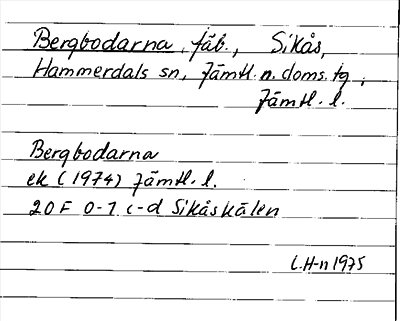 Bergbodarna, fäb., Sikås,
Hammerdals sn, Jämtl. n. doms. tg,
Jämtl. l.
Bergbodarna
ek (1974) Jämtl. l.
20 F 0-1 c-d Sikåskälen
C.H-n 1975